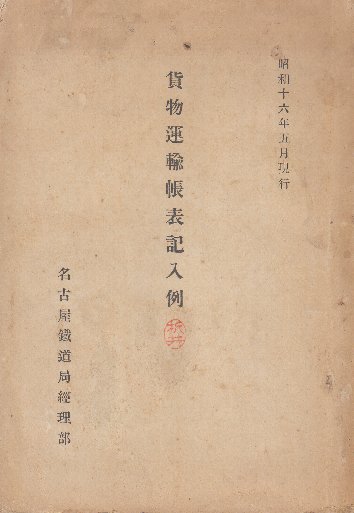 昭和十六年五月現行
貨物運輸帳表記入例
名古屋鐵道局經理部